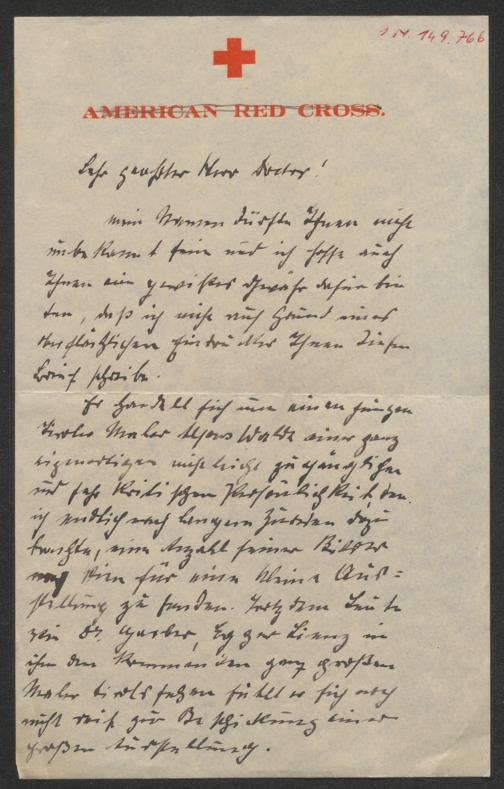 I.N. 149.766
AMERICAN RED CROSS.
Sehr geehrter Herr Doctor!
mein Namen dürfte Ihnen nicht
unbekannt sein und ich hoffe auch
Ihnen ein gewisses Gewähr dafür bie
ten, daß ich nicht auf Grund eines
oberflächlichen Eindruckes Ihnen diesen
Brief schreibe.
Es handelt sich um einen jungen
Tiroler Maler Alfons Walde einer ganz
eigenartigen nicht leicht zugänglichen
und sehr kritischen Persönlichkeit, den
ich endlich nach langem Zureden dazu
brachte, eine Anzahl seiner Bilder
nach Wien für eine kleine Aus=
stellung zu senden. Trotzdem Leute
wie Dr. Garber, Egger Lienz in
ihm den kommenden ganz großen
Maler Tirols sehen fühlt er sich noch
nicht reif zur Beschickung einer
großen Ausstellung.